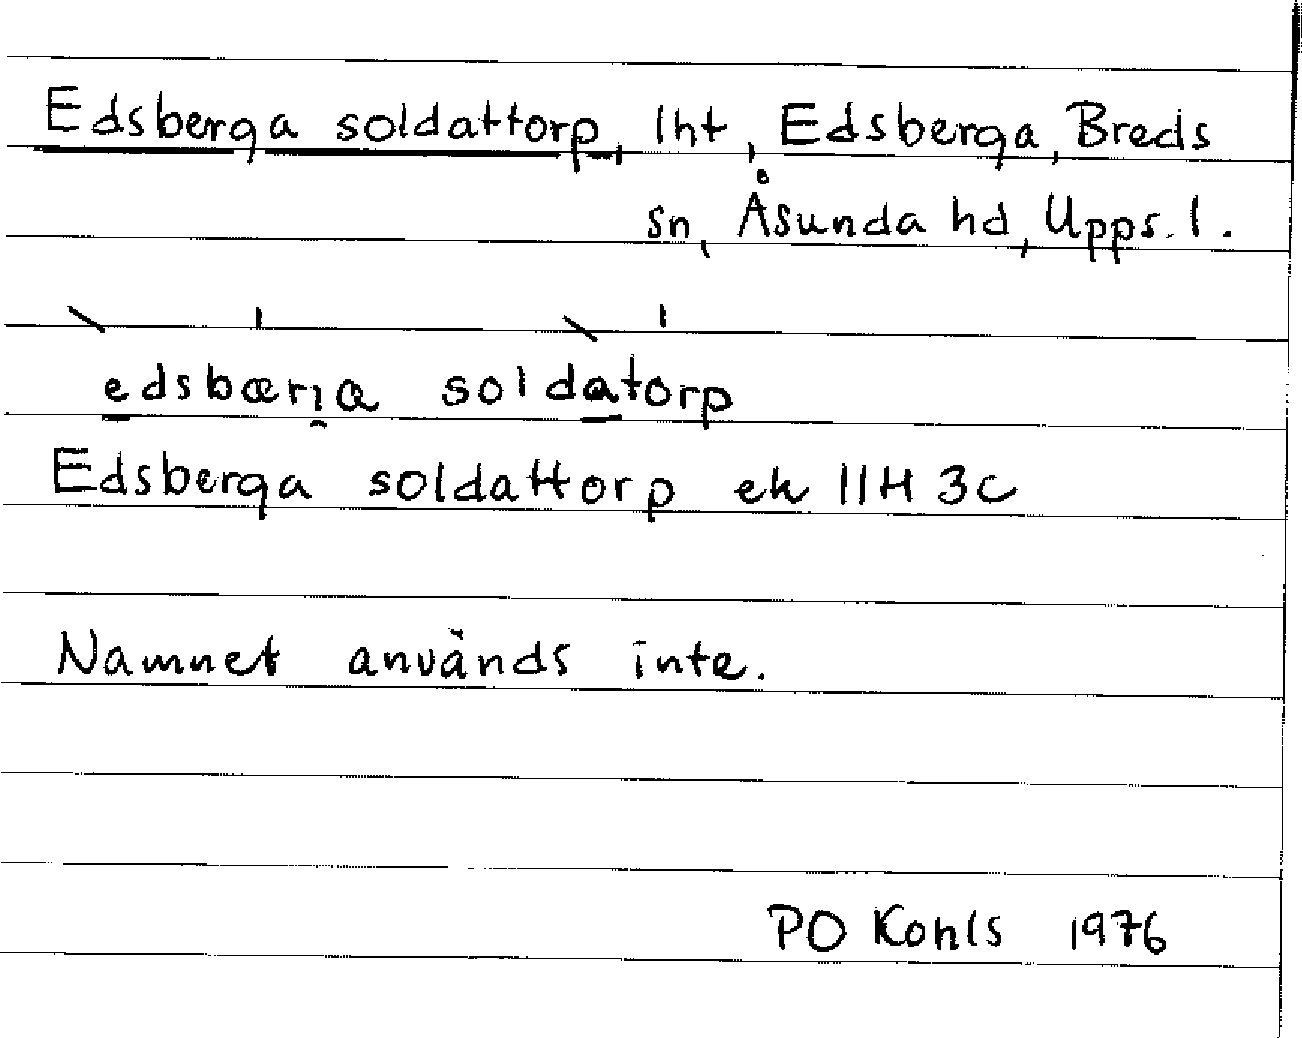 Edsberga soldattorp, lht, Edsberga, Breds
sn, Åsunda hd, Upps. l.
edsbærı̯a soldatorp
Edsberga soldattorp ek 11H 3c
Namnet används inte.
PO Kohls 1976